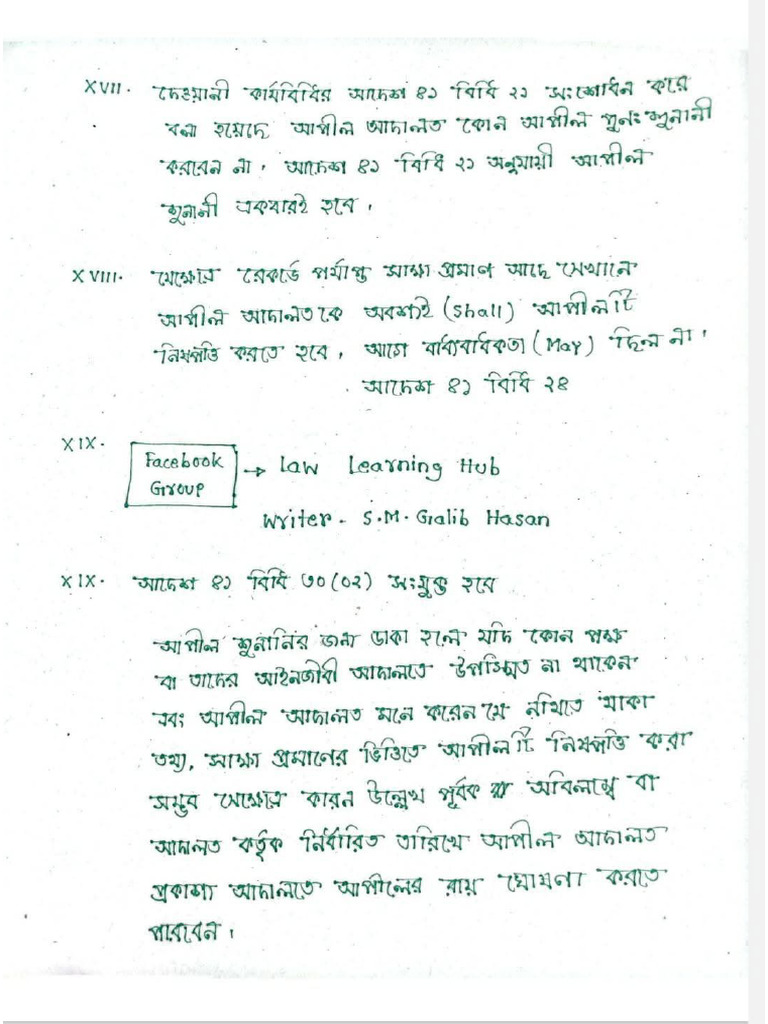 XVII. দেওয়ানী কার্যবিধির আদেশ ৪১ বিধি ২১ সংশোধন করে
বলা হয়েছে আপীল আদালত কোন আপীল পুনঃশুনানী
করবেন না। আদেশ ৪১ বিধি ২১ অনুযায়ী আপীল
শুনানী একবারই হবে।
XVIII. যেক্ষেত্রে রেকর্ডে পর্যাপ্ত সাক্ষ্য প্রমাণ আছে সেখানে
আপীল আদালতকে অবশ্যই (Shall) আপীলটি
নিষ্পত্তি করতে হবে, আগে বাধ্যবাধিকতা (May) ছিল না।
আদেশ ৪১ বিধি ২৪
XIX. Facebook Group → Law Learning Hub
Writer - S.M. Galib Hasan
XIX. আদেশ ৪১ বিধি ৩০(০২) সংযুক্ত হবে
আপীল শুনানির জন্য ডাকা হলে যদি কোন পক্ষ
বা তাদের আইনজীবী আদালতে উপস্থিত না থাকেন
এবং আপীল আদালত মনে করেন যে নথিতে থাকা
তথ্য, সাক্ষ্য প্রমাণের ভিত্তিতে আপীলটি নিষ্পত্তি করা
সম্ভব সেক্ষেত্রে কারন উল্লেখ পূর্বক অবিলম্বে বা
আদালত কর্তৃক নির্ধারিত তারিখে আপীল আদালত
প্রকাশ্য আদালতে আপীলের রায় ঘোষণা করতে
পারবেন।